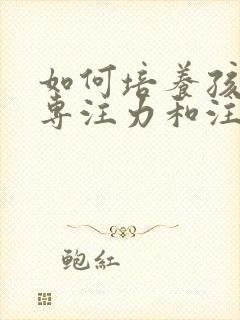 如何培養孩
專注力和注
鮑紅